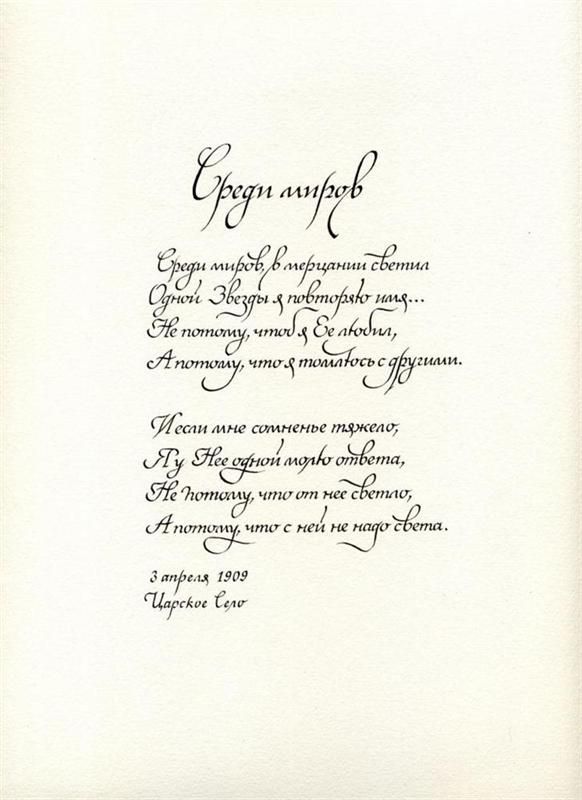 Среди миров
Среди миров, в мерцании светил
Одной Звезды я повторяю имя...
Не потому, чтоб я Ее любил,
А потому, что я томлюсь с другими.
И если мне сомненье тяжело,
Я у Нее одной молю ответа,
Не потому, что от нее светло,
А потому, что с ней не надо света.
3 апреля 1909
Царское Село